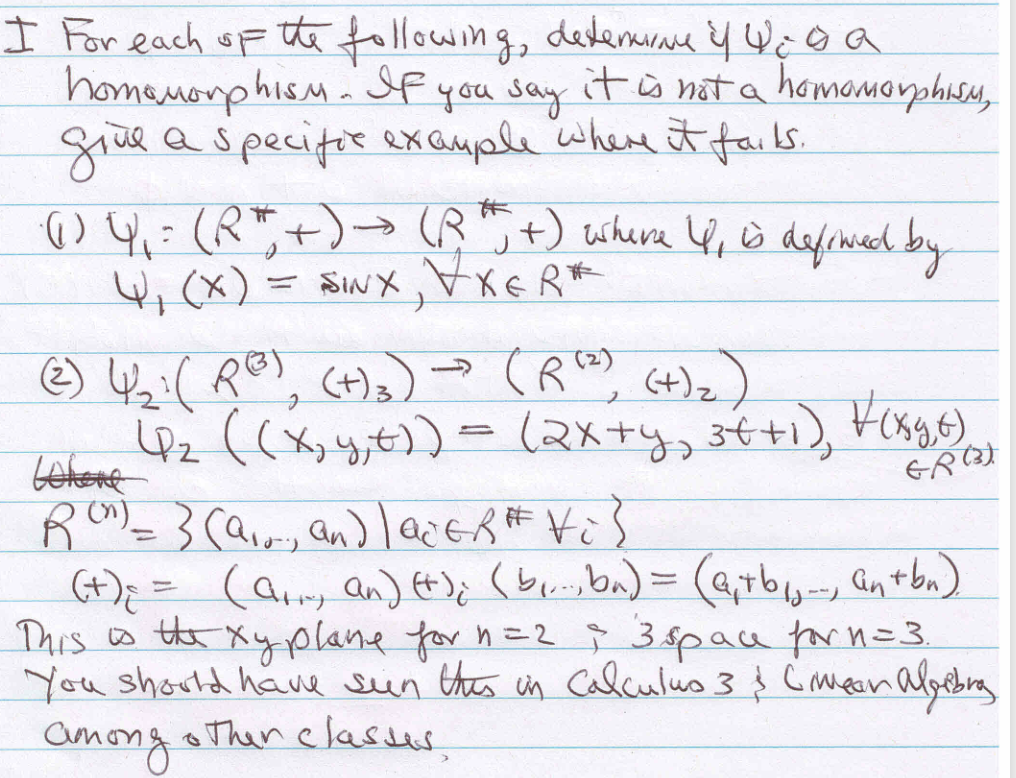 I For each of the following, determine if Ψᵢ is a
homomorphism. If you say it is not a homomorphism,
give a specific example where it fails.
(1) Ψ₁: (R^#, +) → (R^#, +) where Ψ₁ is defined by
Ψ₁ (x) = sin x, ∀ x ∈ R^#
(2) Ψ₂: (R⁽³⁾, (+)₃) → (R⁽²⁾, (+)₂)
Ψ₂ ((x, y, t)) = (2x+y, 3t+1), ∀(x,y,t)
∈ R⁽³⁾.
R⁽ⁿ⁾ = {(a₁,.., aₙ) | aᵢ ∈ R^# ∀i}
(+)ᵢ = (a₁,.., aₙ) (+)ᵢ (b₁,..., bₙ) = (a₁+b₁, ..., aₙ+bₙ).
This is the xy plane for n=2 & 3 space for n=3.
You should have seen this in Calculus 3 & Linear Algebra,
among other classes.